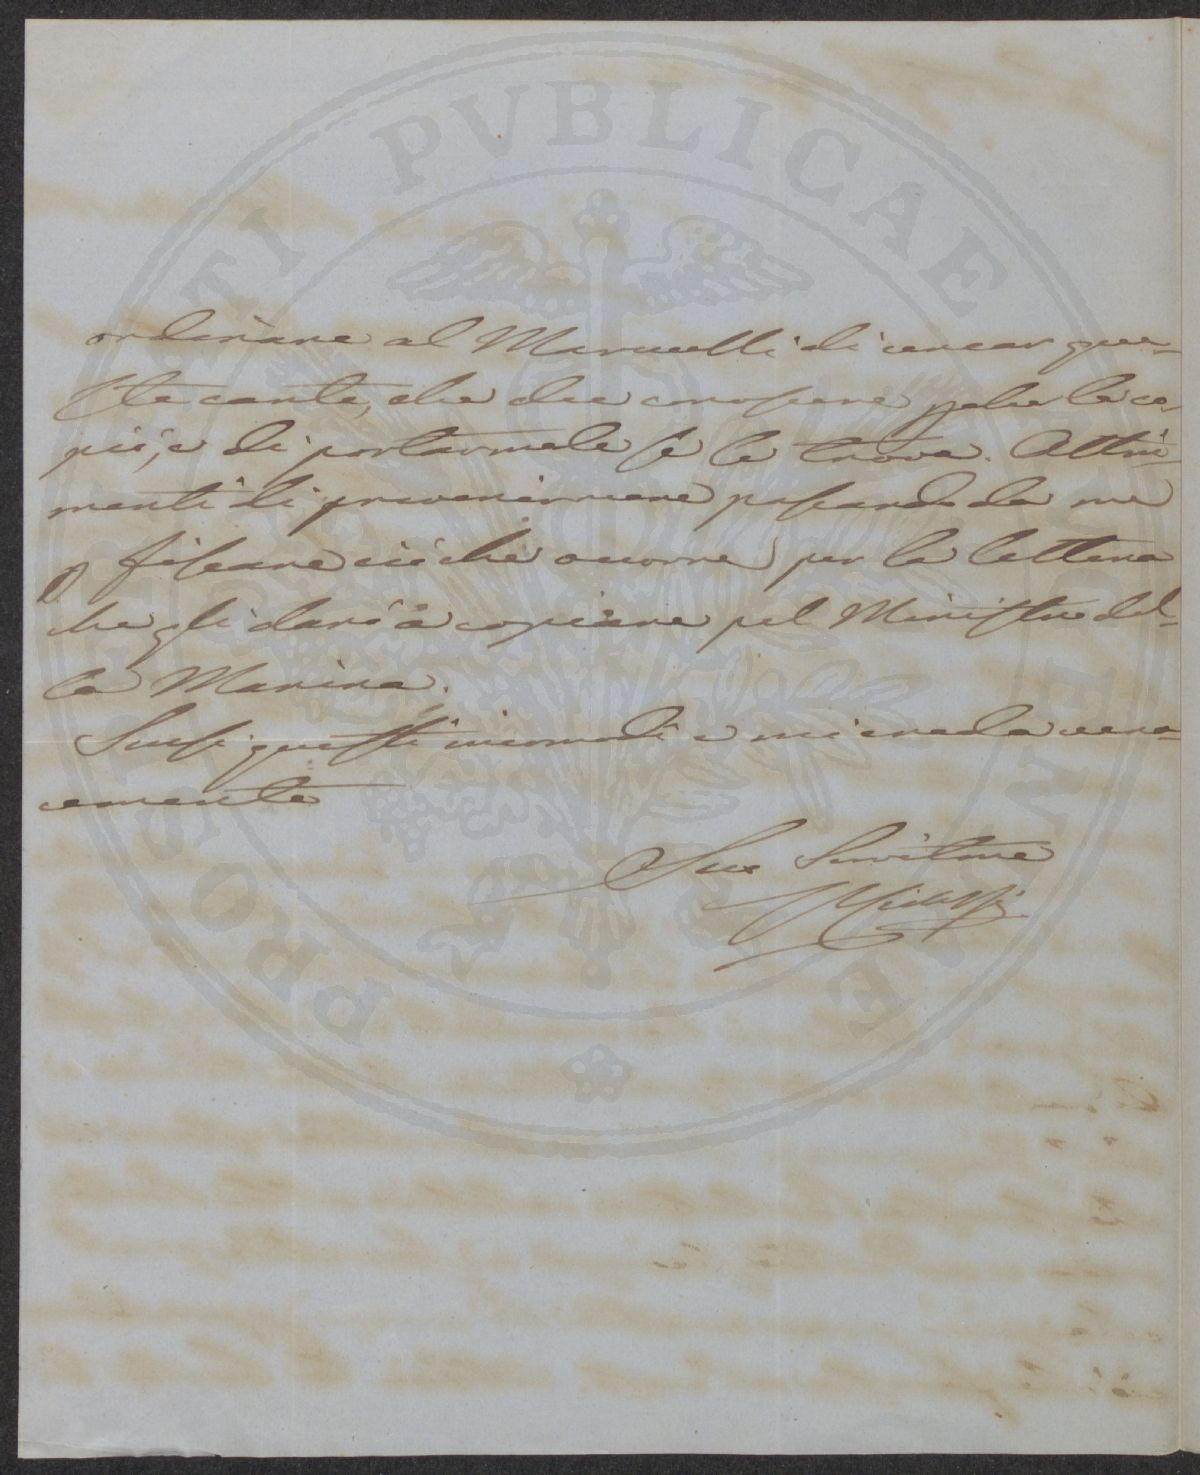 PROSPERITATI PVBLICAE AVGENDAE
ordinare al Marucelli di cercar que-
ste carte, che dee conoscere p che le co-
piò, e di portarmele se le trova. Altri-
menti di prevenirmene passando da me
p fissare ciò che occorre per la lettera
che gli darò a copiare pel Ministro del-
la Marina.
Scusi questi incomodi e mi creda vera-
cemente
Suo Servitore